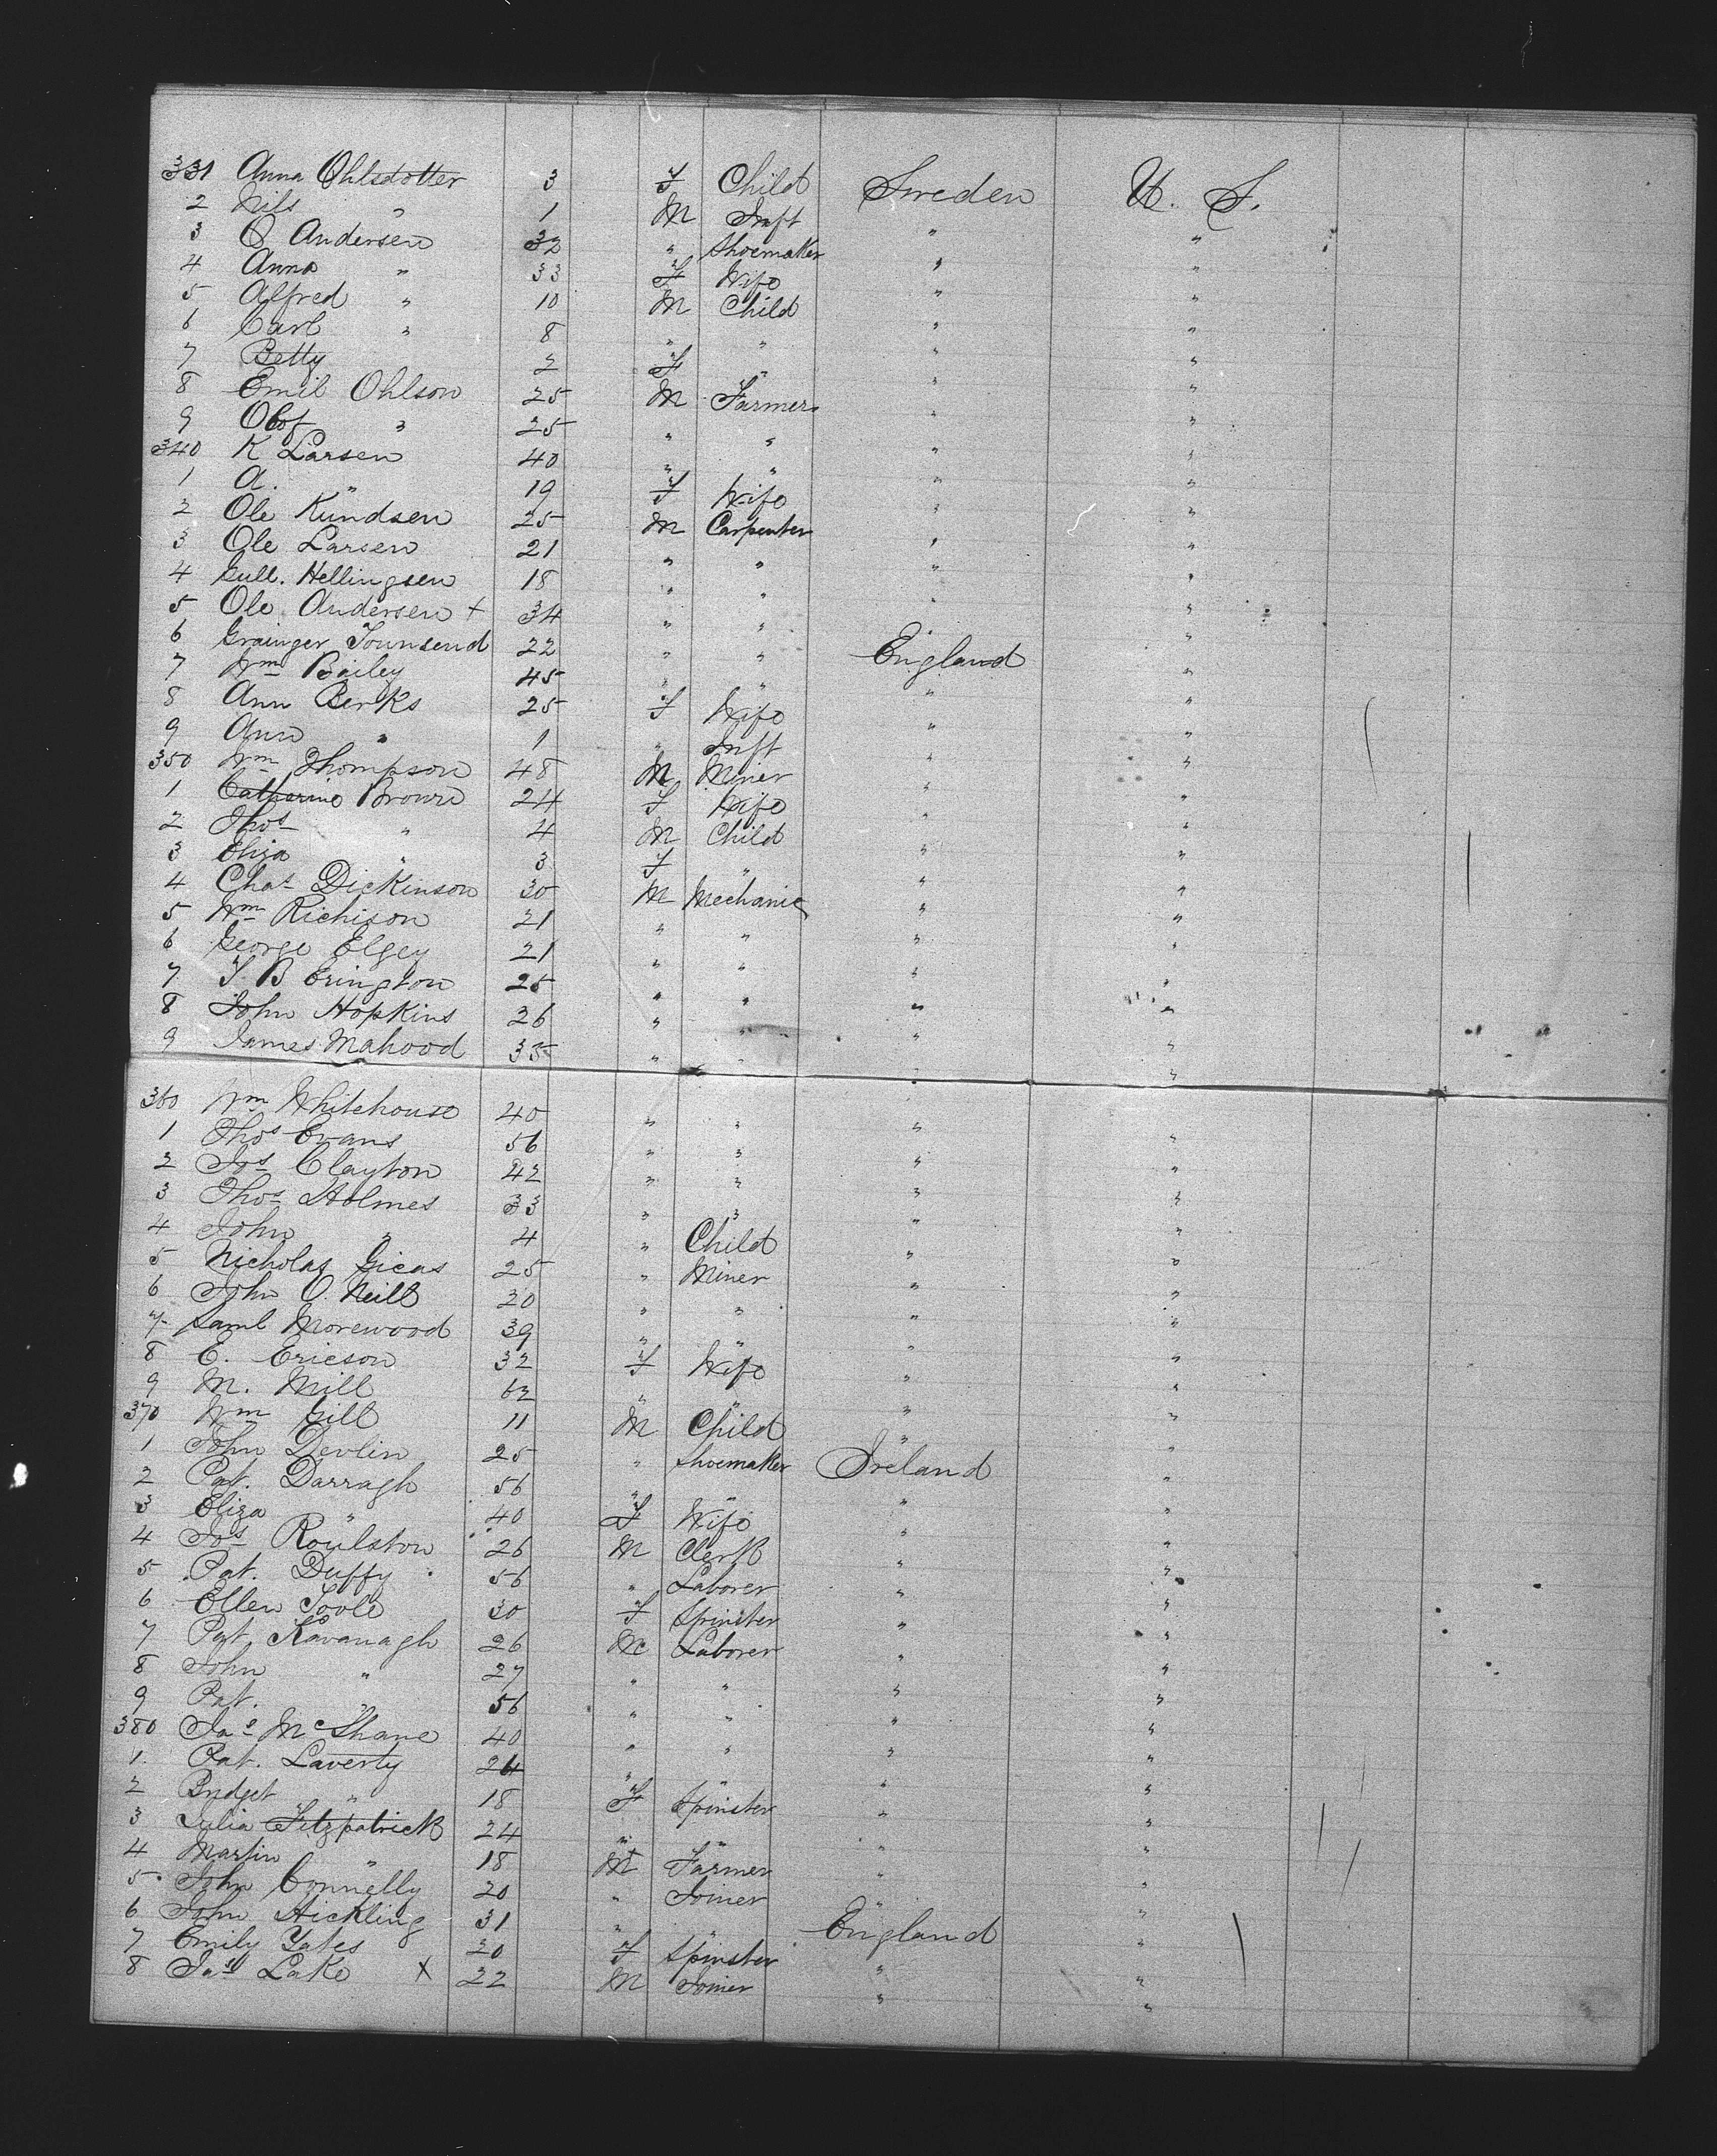 331 Anna Ohlsdotter 3 F Child Sweden U. S.
2 Nils " 1 M Inft " "
3 O Andersen 32 " Shoemaker " "
4 Anna " 33 F Wife " "
5 Alfred " 10 M Child " "
6 Carl " 8 " " " "
7 Betty 2 F " " "
8 Emil Ohlson 25 M Farmer " "
9 Olof " 25 " " " "
340 K Larsen 40 " " " "
1 A. " 19 F Wife " "
2 Ole Kundsen 25 M Carpenter " "
3 Ole Larsen 21 " " " "
4 Gull. Hellingsen 18 " " " "
5 Ole Andersen + 34 " " " "
6 Grainger Townsend 22 " " England "
7 Wm Bailey 45 " " " "
8 Ann Berks 25 F Wife " "
9 Ann " 1 " Inft " "
350 Wm Thompson 48 M Miner " "
1 Catharine Brown 24 F Wife " "
2 Thos " 4 M Child " "
3 Eliza " 3 F " " "
4 Chas Dickinson 30 M Mechanic " "
5 Wm Richison 21 " " " "
6 George Elgey 21 " " " "
7 T. B Erington 25 " " " "
8 John Hopkins 26 " " " "
9 James Mahood 35 " " " "
360 Wm Whitehouse 40 " " " "
1 Thos Evans 56 " " " "
2 Jos Clayton 42 " " " "
3 Thos Holmes 33 " " " "
4 John " 4 " Child " "
5 Nicholas Gicas 25 " Miner " "
6 John O. Neill 20 " " " "
7 Saml Morewood 39 " " " "
8 E. Ericson 32 F Wife " "
9 M. Mill 62 " " " "
370 Wm Gill 11 M Child " "
1 John Devlin 25 " Shoemaker Ireland "
2 Pat. Darragh 56 " " " "
3 Eliza " 40 F Wife " "
4 Jos Roulston 26 M Clerk " "
5 Pat. Duffy 56 " Laborer " "
6 Ellen Toole 30 F Spinster " "
7 Pat Kavanagh 26 M Laborer " "
8 John " 27 " " " "
9 Pat. " 56 " " " "
380 Jas McShane 40 " " " "
1. Pat. Laverty 24 " " " "
2 Bridget " 18 F Spinster " "
3 Julia Fitzpatrick 24 " " " "
4 Martin " 18 M Farmer " "
5 John Connelly 20 " Joiner " "
6 John Hickling 31 " " England "
7 Emily Yates 20 F Spinster " "
8 Jas Lake X 22 M Joiner " "